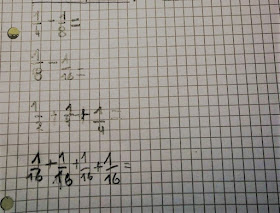 1/4 - 1/8 =
1/8 - 1/16 =
1/2 - 1/4 + 1/4 =
1/16 + 1/16 + 1/16 + 1/16 =